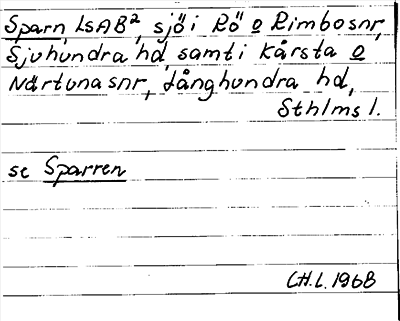 Sparn LSAB², sjö i Rö o Rimbosnr,
Sjuhundra hd, samt i Kårsta o
Närtunasnr, Långhundra hd,
Sthlms l.
se Sparren
CH.L. 1968